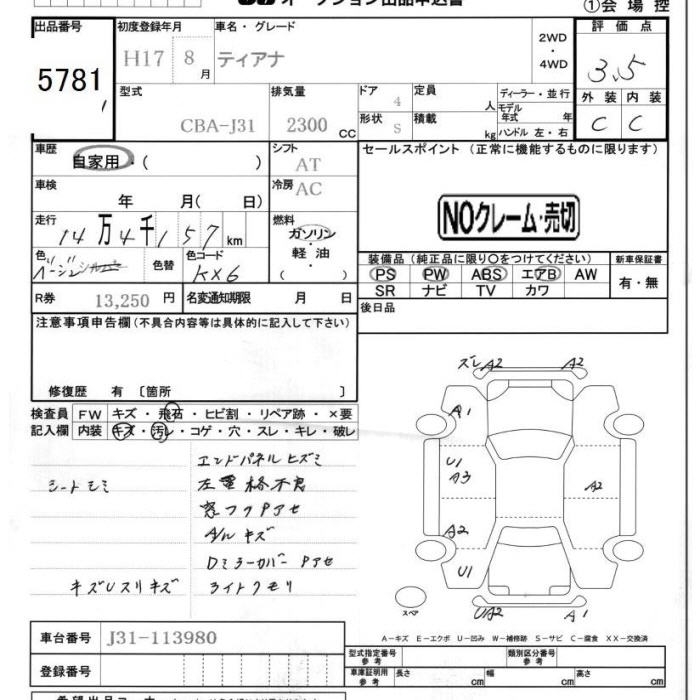 オークション出品申込書
①会場控
出品番号
5781
初度登録年月
H17 8月
車名・グレード
ティアナ
2WD
・
4WD
評価点
3.5
外装 内装
C C
型式
CBA-J31
排気量
2300 CC
ドア
4
形状
S
定員
人
積載
kg
ディーラー・並行
モデル年式 年
ハンドル 左・右
車歴
自家用・( )
シフト
AT
車検
年 月( 日)
冷房
AC
走行
14万4千157km
燃料
ガソリン・
軽油・
( )
色
ベージュ シルバー
色替
色コード
KX6
R券 13,250 円
名変通知期限 月 日
セールスポイント(正常に機能するものに限ります)
NOクレーム・売切
装備品(純正品に限り○をつけてください)
PS PW ABS エアB AW
SR ナビ TV カワ
新車保証書
有・無
後日品
注意事項申告欄(不具合内容等は具体的に記入して下さい)
修復歴 有〔箇所 〕
検査員記入欄
FW キズ・飛石・ヒビ割・リペア跡・×要
内装 キズ・汚レ・コゲ・穴・スレ・キレ・破レ
エンドパネルヒズミ
シートシミ
左電格不良
窓フクPアセ
A/Wキズ
DミラーカバーPアセ
キズUスリキズ
ライトクモリ
ズレA2 A2
A1
U1
A3
A2
A2
U1
UA2 A1
スペア
A-キズ E-エクボ U-凹み W-補修跡 S-サビ C-腐食 XX-交換済
車台番号 J31-113980
登録番号
型式指定番号 参考
類別区分番号 参考
車庫証明用 参考
長さ cm 幅 cm 高さ cm
希望出品コーナー